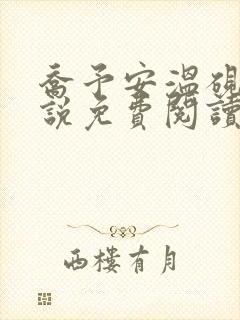 喬予安溫硯
說免費閱讀
西樓有月